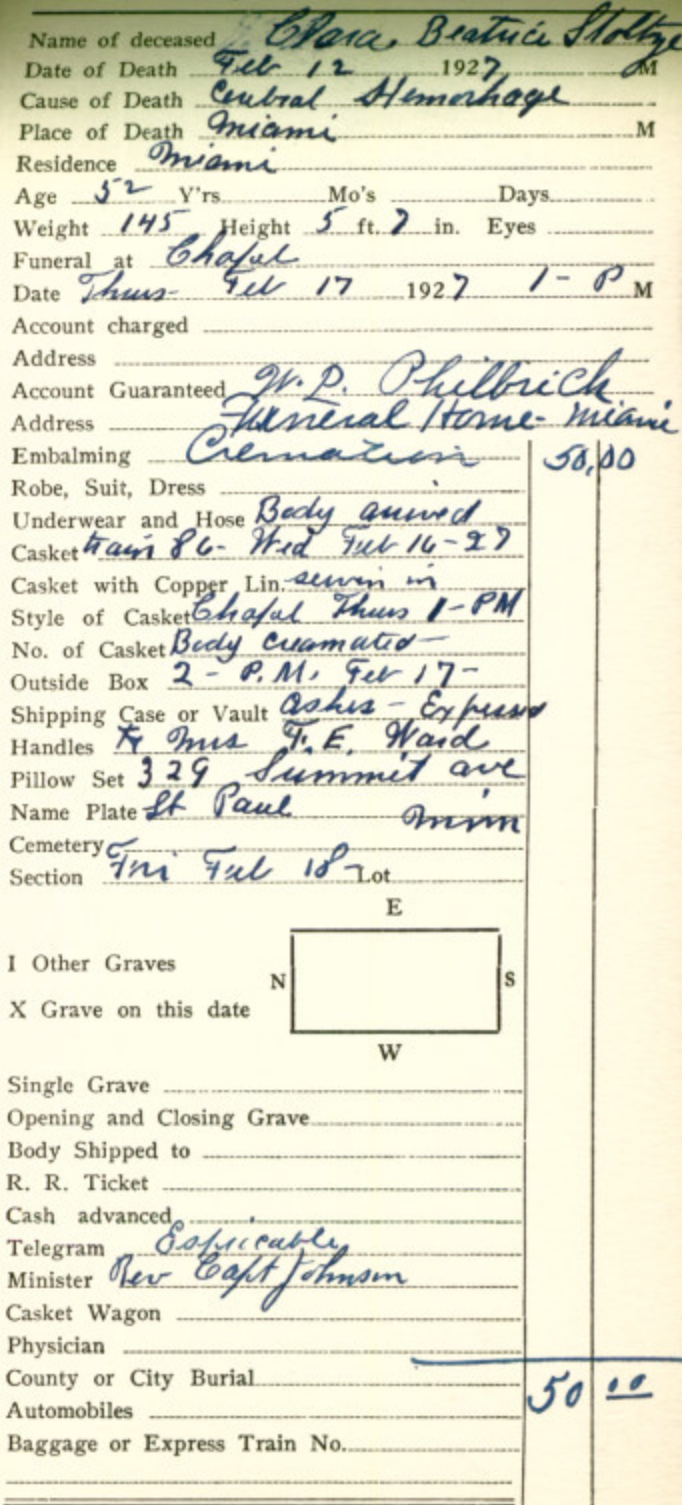 Name of deceased Clara Beatrice Stoltze
Date of Death Feb 12 1927 M
Cause of Death Cerebral Hemorhage
Place of Death Miami M
Residence Miami
Age 52 Y'rs Mo's Days
Weight 145 Height 5 ft. 7 in. Eyes
Funeral at Chapel
Date Thurs- Feb 17 1927 1- P M
Account charged
Address
Account Guaranteed W. P. Philbrick
Address Funeral Home- Miami
Embalming Cremation 50,00
Robe, Suit, Dress
Underwear and Hose Body arrived
Casket train 86- Wed Feb 16-27
Casket with Copper Lin. in
Style of Casket Chapel Thurs 1-PM
No. of Casket Body creamated-
Outside Box 2- P.M. Feb 17-
Shipping Case or Vault Ashes - Expressed
Handles to Mrs F. E. Ward
Pillow Set 329 Summit ave
Name Plate St Paul Minn
Cemetery
Section Fri Feb 18- Lot
E
I Other Graves
N S
X Grave on this date
W
Single Grave
Opening and Closing Grave
Body Shipped to
R. R. Ticket
Cash advanced
Telegram
Minister Rev Capt Johnson
Casket Wagon
Physician
County or City Burial 50 00
Automobiles
Baggage or Express Train No.